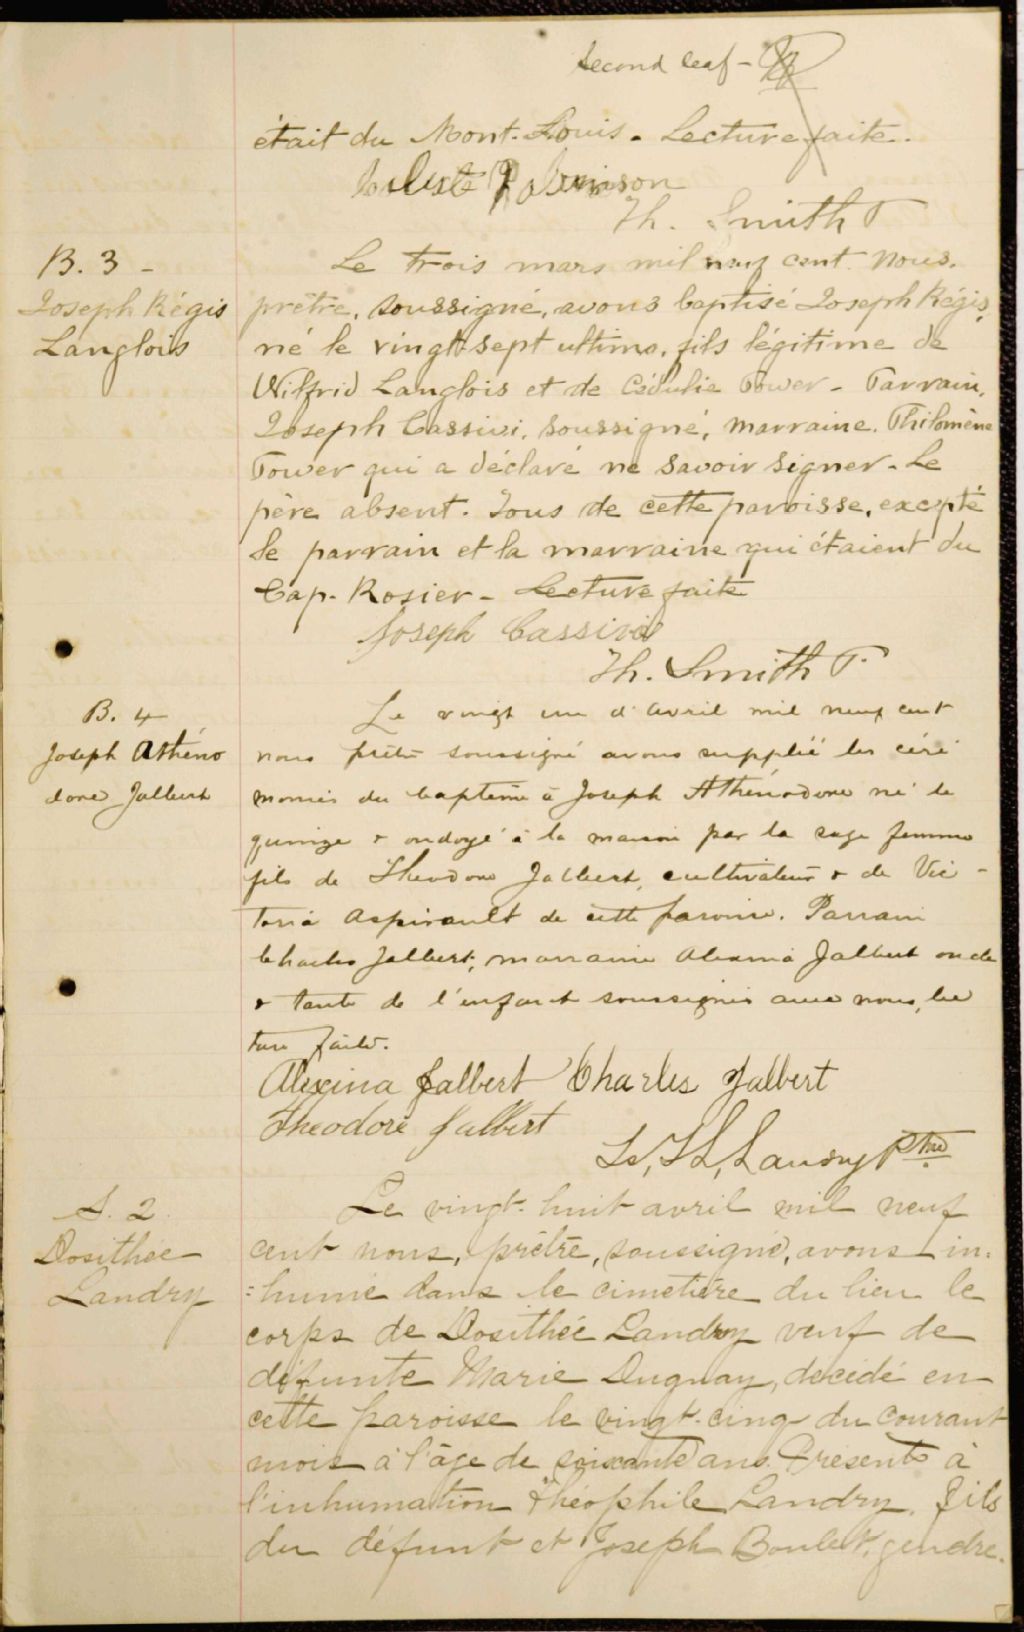 Second leaf -
était du Mont-Louis. Lecture faite.
Robinson
Th. Smith P
B. 3 -
Joseph Régis
Langlois
Le trois mars mil neuf cent. Nous,
prêtre, soussigné, avons baptisé Joseph Régis,
né le vingt-sept ultimo, fils légitime de
Wilfrid Langlois et de Cédulie Tower - Parrain,
Joseph Cassivi, soussigné, marraine, Philomène
Tower qui a déclaré ne savoir signer. Le
père absent. Tous de cette paroisse, excepté
le parrain et la marraine qui étaient du
Cap-Rosier - Lecture faite
Joseph Cassivi
Th. Smith P.
B. 4
Joseph Athéno
dore Jalbert
Le vingt un d'avril mil neuf cent
nous prêtre soussigné avons supplié les céré
monies du baptême à Joseph Athénodore né le
quinze & ondoyé à la maison par la sage femme
fils de Théodore Jalbert, cultivateur & de Vic -
toria Aspirault de cette paroisse. Parrain
Charles Jalbert, marraine Alexina Jalbert oncle
& tante de l'enfant soussignés avec nous, lec
ture faite.
Alexina Jalbert Charles Jalbert
Théodore Jalbert
Landry Ptre
S. 2
Dosithée
Landry
Le vingt-huit avril mil neuf
cent nous, prêtre, soussigné, avons in=
=humé dans le cimetière du lieu le
corps de Dosithée Landry veuf de
défunte Marie Duguay, décédé en
cette paroisse le vingt-cinq du courant
mois à l'âge de soixante ans. Présents à
l'inhumation Théophile Landry, fils
du défunt et Joseph Boulet, gendre.